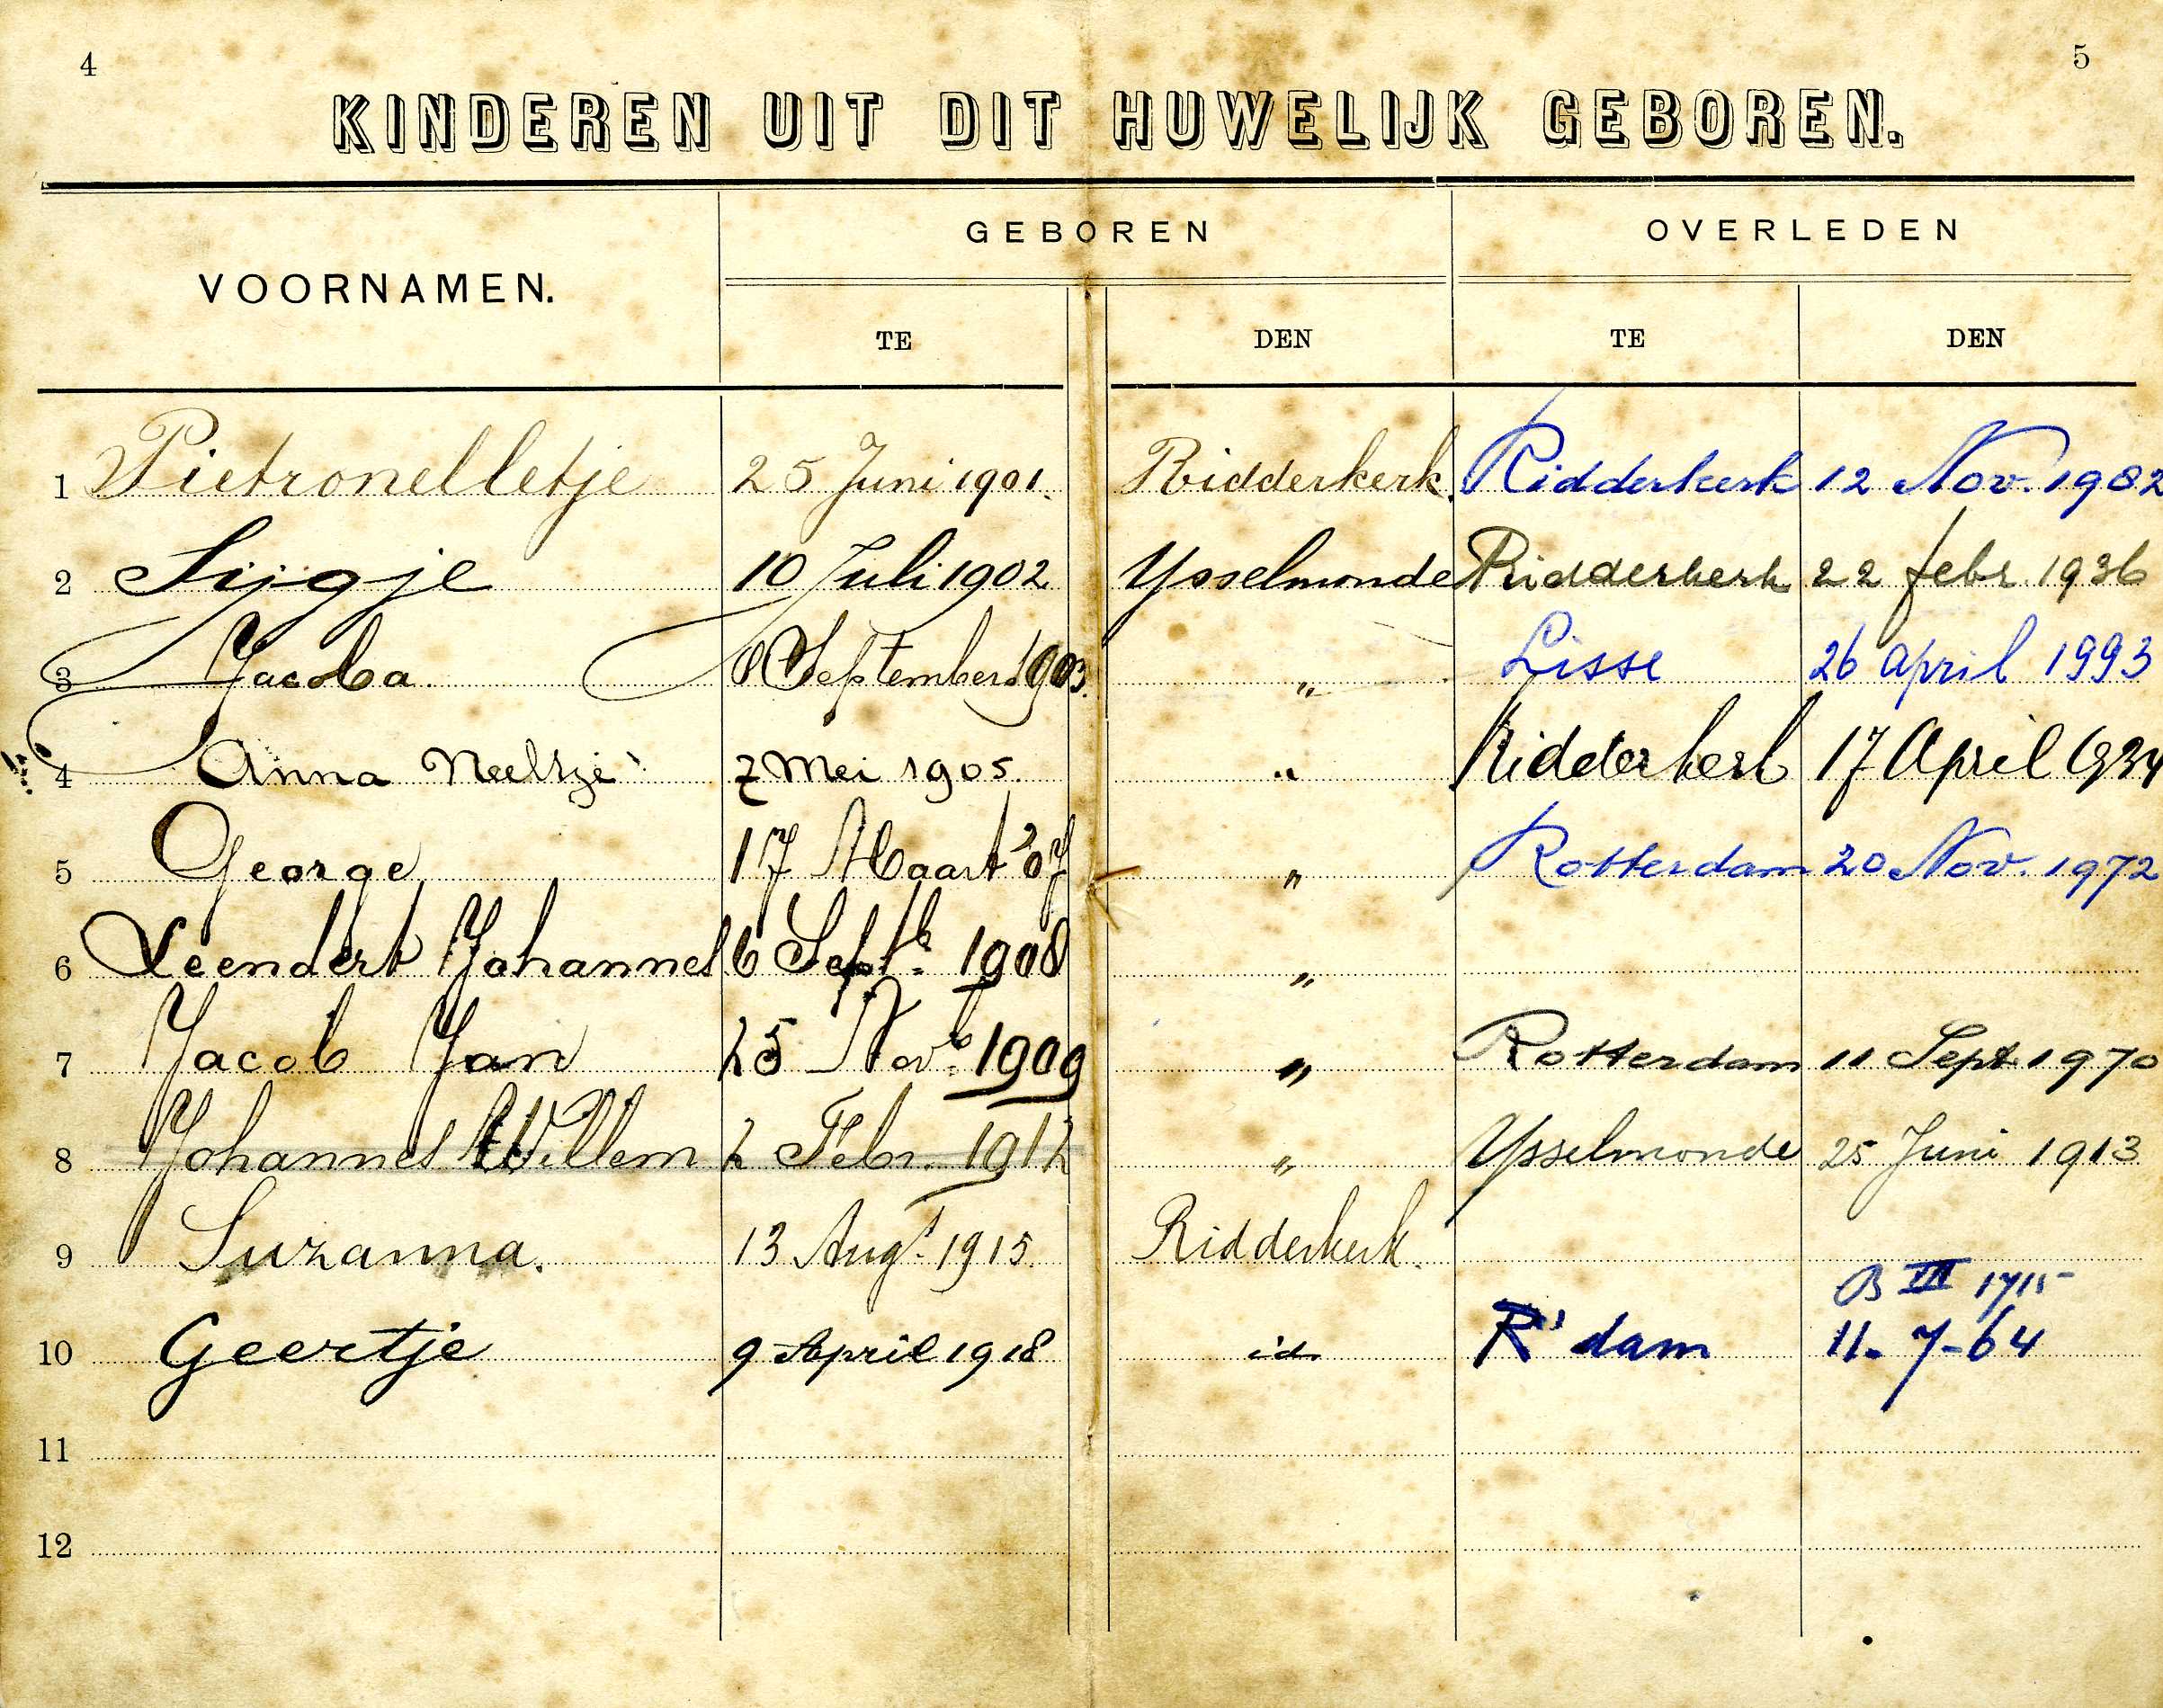 4 5
KINDEREN UIT DIT HUWELIJK GEBOREN.
VOORNAMEN. GEBOREN OVERLEDEN
TE DEN TE DEN
1 Pietronelletje 25 Juni 1901. Ridderkerk. Ridderkerk 12 Nov. 1982
2 Sijgje 10 Juli 1902 Ysselmonde Ridderkerk 22 febr. 1936
3 Jacoba 8 September 1903. " Lisse 26 april 1993
4 Anna Neeltje 7 Mei 1905. " Ridderkerk 17 April 1934
5 George 17 Maart '07 " Rotterdam 20 Nov. 1972
6 Leendert Johannes 6 Septb. 1908 "
7 Jacob Jan 25 Novb. 1909 " Rotterdam 11 Sept. 1970
8 Johannes Willem 2 Febr. 1912 " Ysselmonde 25 Juni 1913
9 Suzanna. 13 Augt. 1915. Ridderkerk.
B VII 1715
10 Geertje 9 April 1918 id. R'dam 11-7-64
11
12